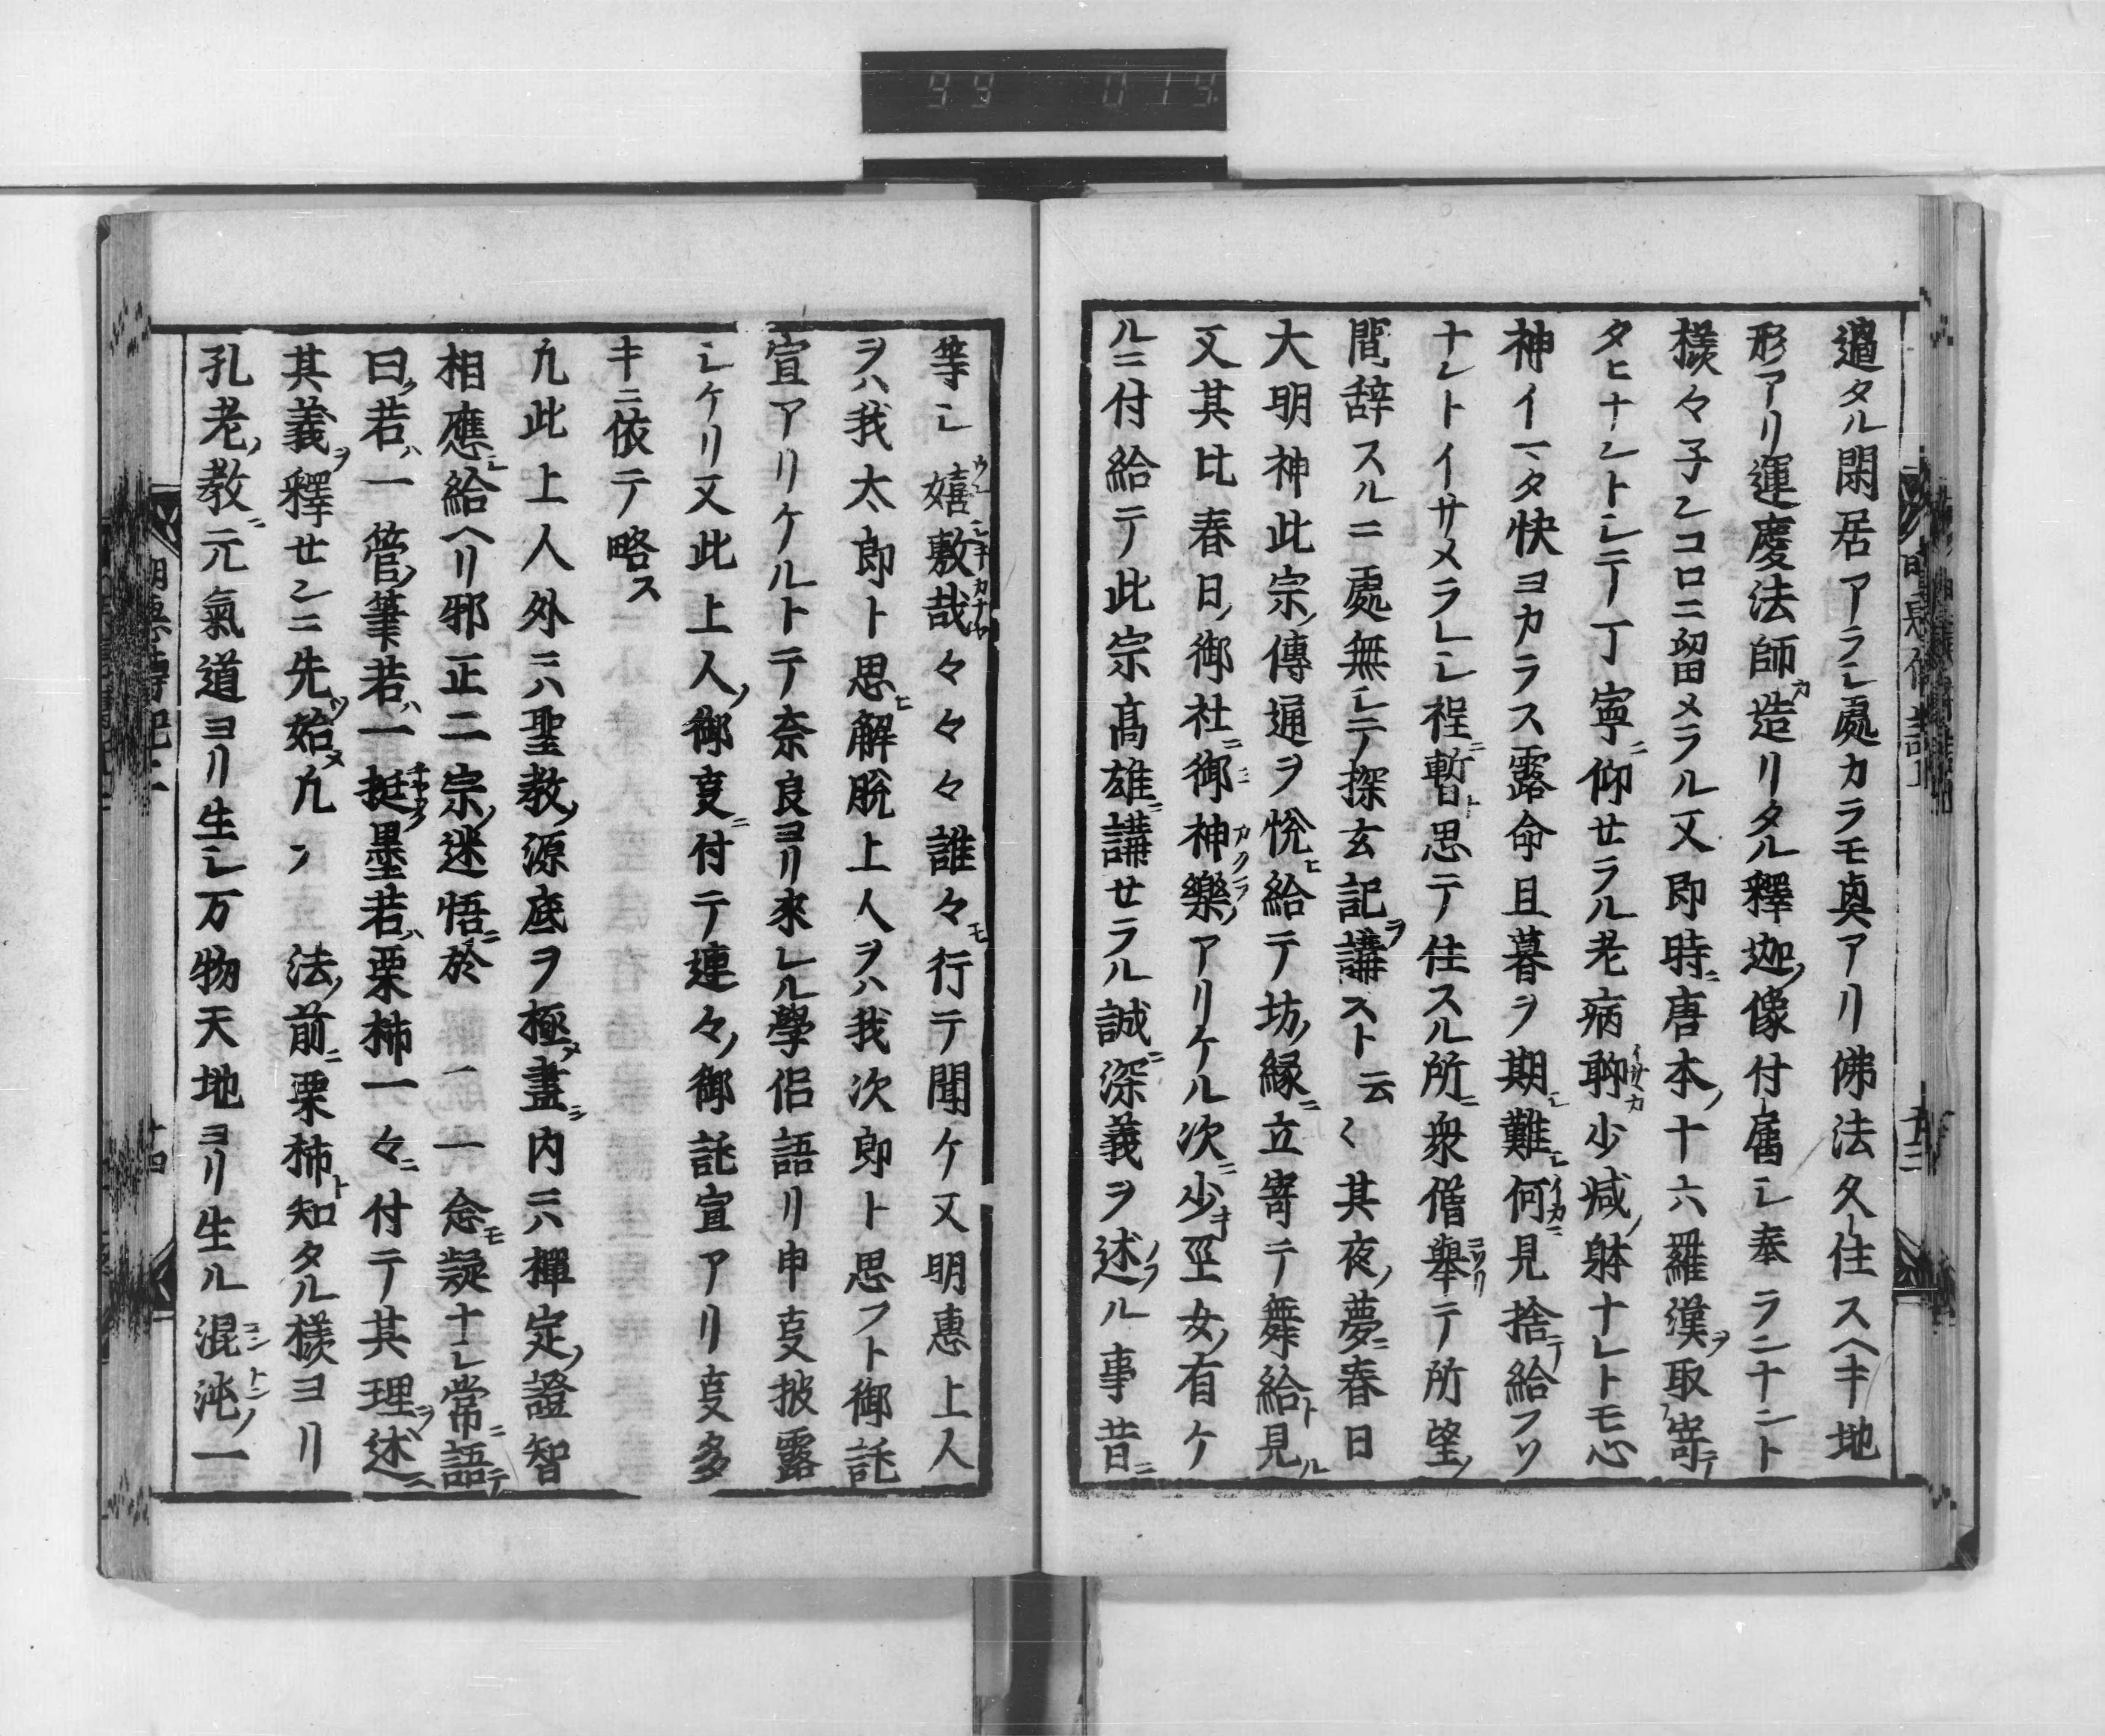 99 019
遁タル閑居アラシ處カラモ眞アリ佛法久ト住スヘキ地
形アリ運慶法師カ造リタル釋迦ノ像付屬シ奉ラントナント
様々子ンコロニ留メラル又即時ニ唐本ノ十六羅漢ヲ取寄テ
タヒナントシテ丁寧ニ仰セラル老病聊イサヽカ少減ノ躰ナレトモ心
神イマタ快ヨカラス露命且暮ヲ期シ難シ何イカニ見捨テ給フソ
ナントイサメラレシ程ニ暫ト思テ住スル所ニ衆僧擧コソリテ所望ノ
間辞スルニ處無シテ探玄記ヲ講スト云〻其夜ノ夢ニ春日
大明神此宗ノ傳通ヲ悦ヒ給テ坊ノ縁ニ立寄テ舞給ト見ル
又其比春日ノ御社ニ御ミ神樂カクラノアリケル次ニ少キ巫女ノ有ケ
ルニ付給テ此宗高雄ニ講セラル誠ニ深義ヲ述ノフル事昔ニ
等シ嬉ウレシキ敷哉カナ々々々誰々モ行テ聞ケ又明惠上人
ヲハ我太郎ト思ヒ解脱上人ヲハ我次郎ト思フト御託
宣アリケルトテ奈良ヨリ來レル學侶語リ申㕝披露
シケリ又此上人ノ御㕝ニ付テ連々ノ御託宣アリ㕝多
キニ依テ略ス
凢此上人外ニハ聖教ノ源底ヲ極メ盡シ内ニハ禪定ノ證智
相應シ給ヘリ邪正二宗ノ迷悟ニ於一一念モ疑ナシ常ニ語テ
曰ク若ハ一管ノ筆若ハ一挺チヤウノ墨若ハ栗柿一々ニ付テ其理ヲ述ニ
其義ヲ釋センニ先ツ始メ凢ノ法ノ前ニ栗柿ト知タル様ヨリ
孔老ノ教ニ元氣道ヨリ生シ万物天地ヨリ生ル混コン沌トンノ一